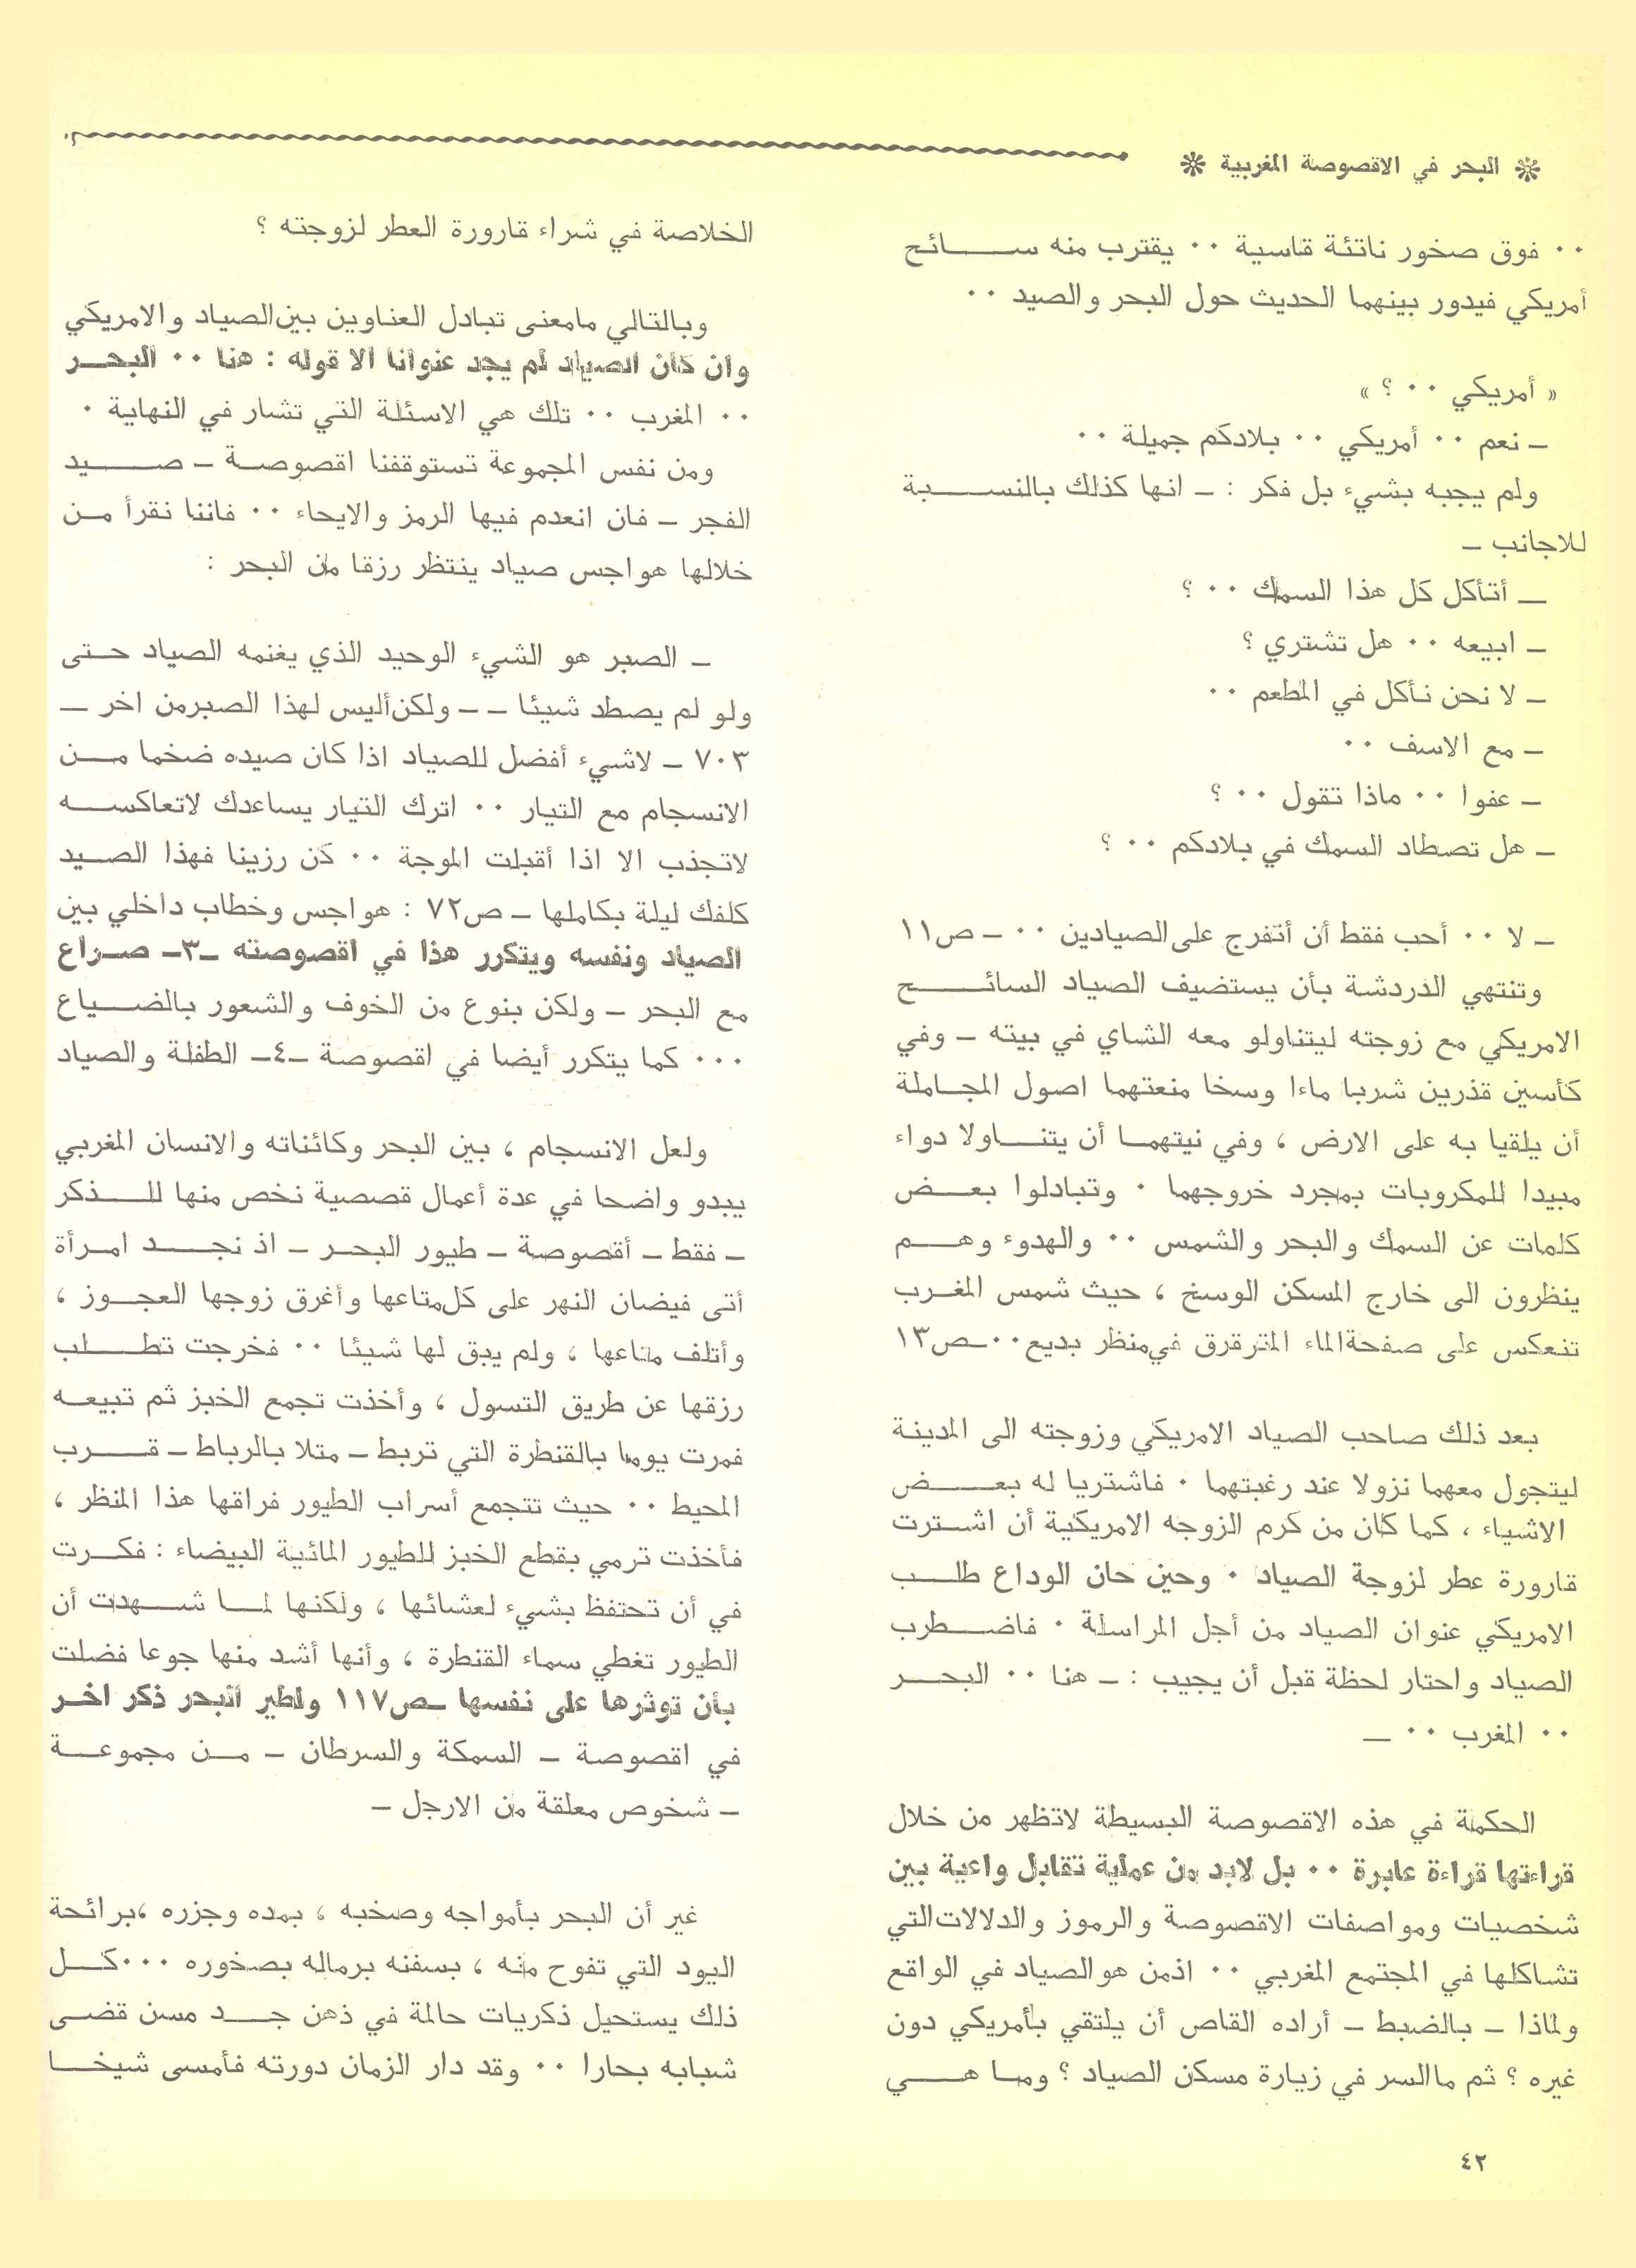 ❊ البحر في الاقصوصة المغربية ❊
٠٠ فوق صخور ناتئة قاسية ٠٠ يقترب منه سائح
أمريكي فيدور بينهما الحديث حول البحر والصيد ٠٠
« أمريكي ٠٠ ؟ »
ـ نعم ٠٠ أمريكي ٠٠ بلادكم جميلة ٠٠
ولم يجبه بشيء بل فكر : ـ انها كذلك بالنسبة
للاجانب ـ
ـ أتأكل كل هذا السمك ٠٠ ؟
ـ ابيعه ٠٠ هل تشتري ؟
ـ لا نحن نأكل في المطعم ٠٠
ـ مع الاسف ٠٠
ـ عفوا ٠٠ ماذا تقول ٠٠ ؟
ـ هل تصطاد السمك في بلادكم ٠٠ ؟
ـ لا ٠٠ أحب فقط أن أتفرج على الصيادين ٠٠ ـ ص١١
وتنتهي الدردشة بأن يستضيف الصياد السائح
الامريكي مع زوجته ليتناولو معه الشاي في بيته ـ وفي
كأسين قذرين شربا ماءا وسخا منعتهما اصول المجاملة
أن يلقيا به على الارض ، وفي نيتهما أن يتناولا دواء
مبيدا للمكروبات بمجرد خروجهما ٠ وتبادلوا بعض
كلمات عن السمك والبحر والشمس ٠٠ والهدوء وهم
ينظرون الى خارج المسكن الوسخ ، حيث شمس المغرب
تنعكس على صفحة الماء المترقرق في منظر بديع ٠٠ ـ ص١٣
بعد ذلك صاحب الصياد الامريكي وزوجته الى المدينة
ليتجول معهما نزولا عند رغبتهما ٠ فاشتريا له بعض
الاشياء ، كما كان من كرم الزوجه الامريكية أن اشترت
قارورة عطر لزوجة الصياد ٠ وحين حان الوداع طلب
الامريكي عنوان الصياد من أجل المراسلة ٠ فاضطرب
الصياد واحتار لحظة قبل أن يجيب : ـ هنا ٠٠ البحر
٠٠ المغرب ٠٠ ـ
الحكمة في هذه الاقصوصة البسيطة لاتظهر من خلال
قراءتها قراءة عابرة ٠٠ بل لابد من عملية تقابل واعية بين
شخصيات ومواصفات الاقصوصة والرموز والدلالات التي
تشاكلها في المجتمع المغربي ٠٠ اذمن هو الصياد في الواقع
ولماذا ـ بالضبط ـ أراده القاص أن يلتقي بأمريكي دون
غيره ؟ ثم ماالسر في زيارة مسكن الصياد ؟ وما هي
الخلاصة في شراء قارورة العطر لزوجته ؟
وبالتالي مامعنى تبادل العناوين بين الصياد والامريكي
وان كان الصياد لم يجد عنوانا الا قوله : هنا ٠٠ البحر
٠٠ المغرب ٠٠ تلك هي الاسئلة التي تشار في النهاية ٠
ومن نفس المجموعة تستوقفنا اقصوصة ـ صيد
الفجر ـ فان انعدم فيها الرمز والايحاء ٠٠ فاننا نقرأ من
خلالها هواجس صياد ينتظر رزقا من البحر :
ـ الصبر هو الشيء الوحيد الذي يغنمه الصياد حتى
ولو لم يصطد شيئا ـ ـ ولكن أليس لهذا الصبر من اخر ـ
٧٠٣ ـ لاشيء أفضل للصياد اذا كان صيده ضخما من
الانسجام مع التيار ٠٠ اترك التيار يساعدك لاتعاكسه
لاتجذب الا اذا أقبلت الموجة ٠٠ كن رزينا فهذا الصيد
كلفك ليلة بكاملها ـ ص٧٢ : هواجس وخطاب داخلي بين
الصياد ونفسه ويتكرر هذا في اقصوصته ـ٣ـ صراع
مع البحر ـ ولكن بنوع من الخوف والشعور بالضياع
٠٠٠ كما يتكرر أيضا في اقصوصة ـ٤ـ الطفلة والصياد
ولعل الانسجام ، بين البحر وكائناته والانسان المغربي
يبدو واضحا في عدة أعمال قصصية نخص منها للذكر
ـ فقط ـ أقصوصة ـ طيور البحر ـ اذ نجد امرأة
أتى فيضان النهر على كل متاعها وأغرق زوجها العجوز ،
وأتلف متاعها ، ولم يبق لها شيئا ٠٠ فخرجت تطلب
رزقها عن طريق التسول ، وأخذت تجمع الخبز ثم تبيعه
فمرت يوما بالقنطرة التي تربط ـ متلا بالرباط ـ قرب
المحيط ٠٠ حيث تتجمع أسراب الطيور فراقها هذا المنظر ،
فأخذت ترمي بقطع الخبز للطيور المائية البيضاء : فكرت
في أن تحتفظ بشيء لعشائها ، ولكنها لما شهدت أن
الطيور تغطي سماء القنطرة ، وأنها أشد منها جوعا فضلت
بأن توثرها على نفسها ـ ص١١٧ ولطير البحر ذكر اخر
في اقصوصة ـ السمكة والسرطان ـ من مجموعة
ـ شخوص معلقة من الارجل ـ
غير أن البحر بأمواجه وصخبه ، بمده وجزره ، برائحة
اليود التي تفوح منه ، بسفنه برماله بصخوره ٠٠٠ كل
ذلك يستحيل ذكريات حالمة في ذهن جد مسن قضى
شبابه بحارا ٠٠ وقد دار الزمان دورته فأمسى شيخا
٤٢